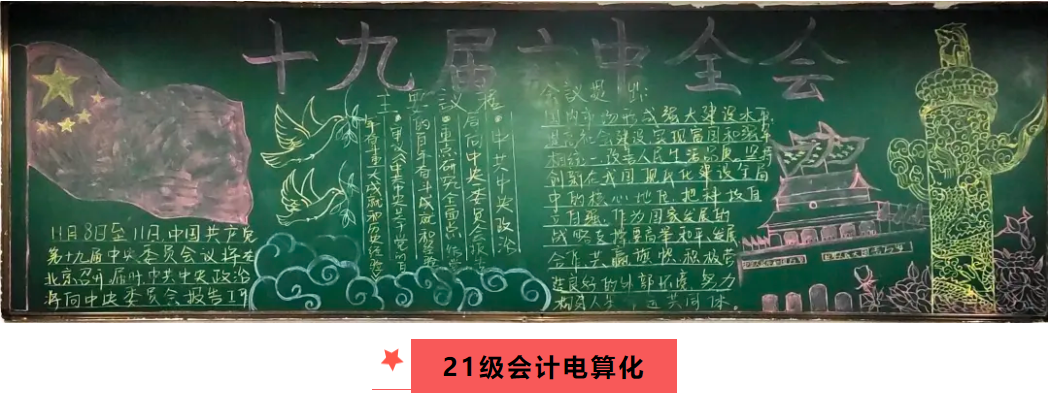 十九届六中全会
11月8日至11月,中国共产党
第十九届中央委员会议将在
北京召开届时中共中央政治
将向中央委员会报告工作
主要议程
·中共中央政治
局向中央委员会报告
·重点研究全面
的百年奋斗
·审议《中共中央关于党的百
年奋斗重大成就和历史经验
会议提出:
国内市场形成强大建设水平
进高社会建设实现富国和强军
相统一改善人民生活品质,坚持
创新在我国现代化建设全局
中的核心地位把科技自
立自强,作为国家发展的
战略支撑要高举和平、发展
合作共赢旗帜积极营
造良好的外部环境,努力
构建人类 运共同体。
21级会计电算化